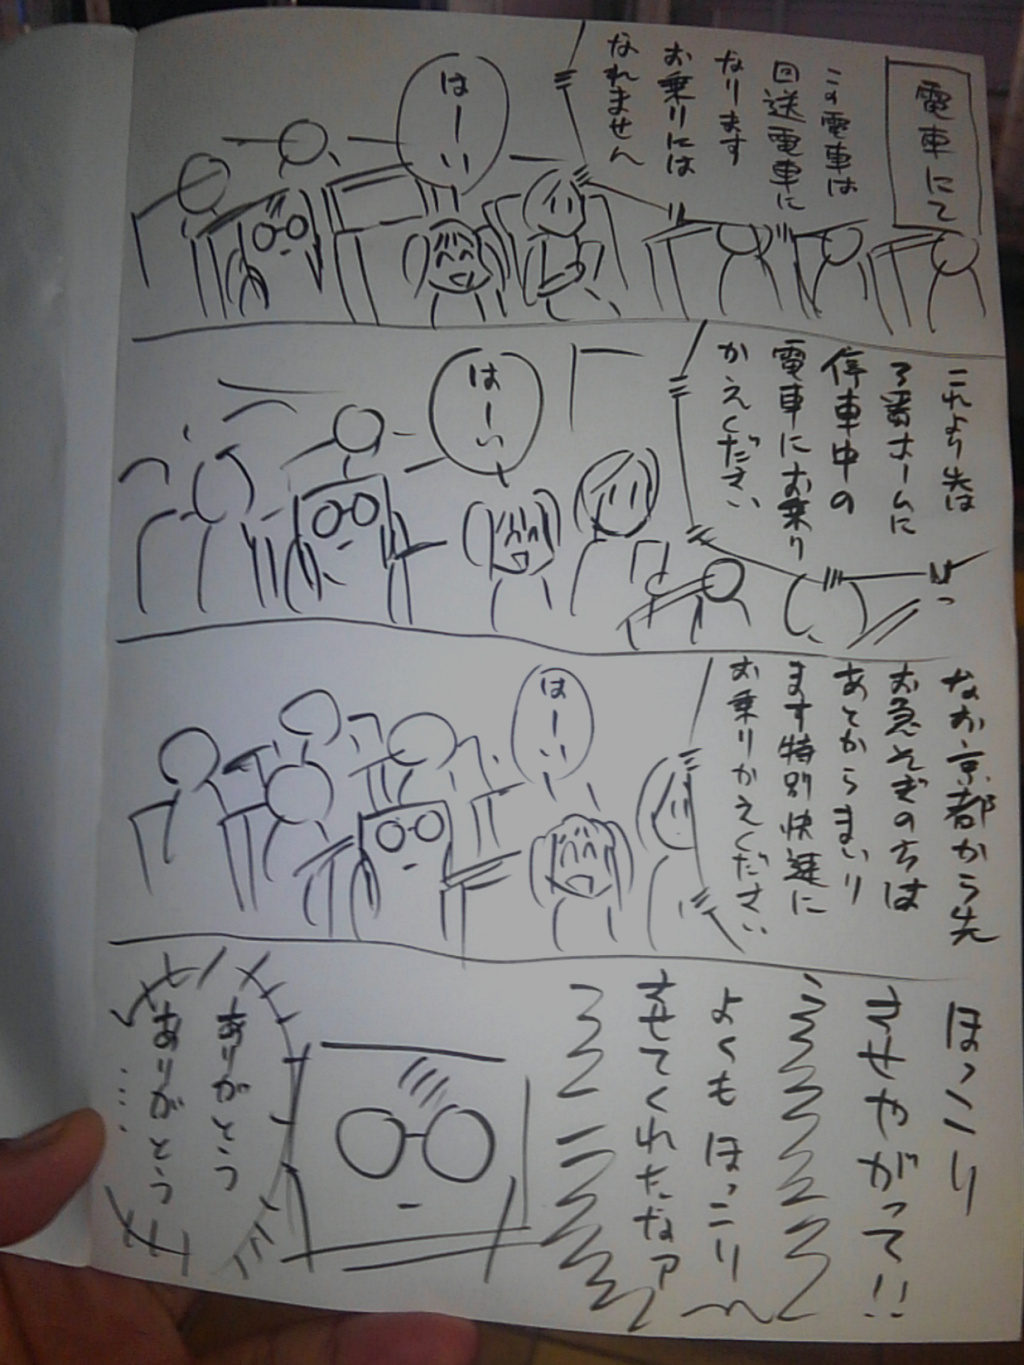 電車にて
この電車は
回送電車に
なります
お乗りには
なれません
はーい
これより先は
3番ホームに
停車中の
電車にお乗り
かえください
はーい
なお京都から先
お急ぎの方は
あとからまいり
ます特別快速に
お乗りかえください
はーい
ほっこり
させやがって!!
よくもほっこり
させてくれたなァ
ありがとう
ありがとう
……